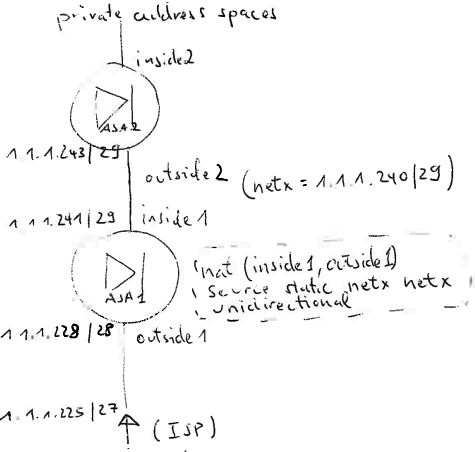 private address spaces
inside2
ASA2
1.1.1.243/29
outside2 (netx = 1.1.1.240/29)
1.1.1.241/29 inside1
ASA1
nat (inside1, outside1)
source static netx netx
unidirectional
1.1.1.228/28 outside1
1.1.1.225/27
(ISP)